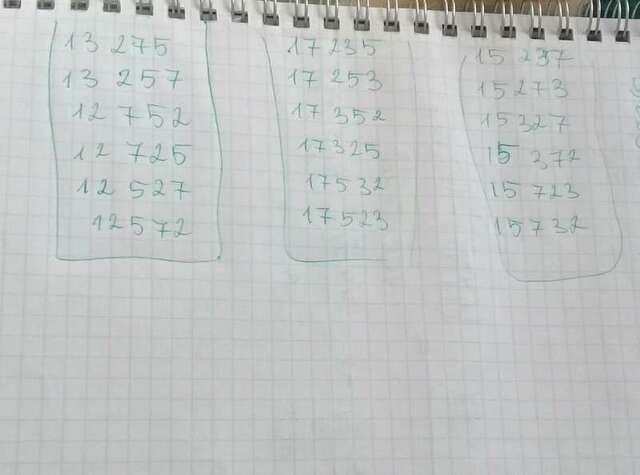 13 275
13 257
12 752
12 725
12 527
12572
17 235
17 253
17 352
17325
17532
17523
15 237
15273
15327
15 372
15 723
15732